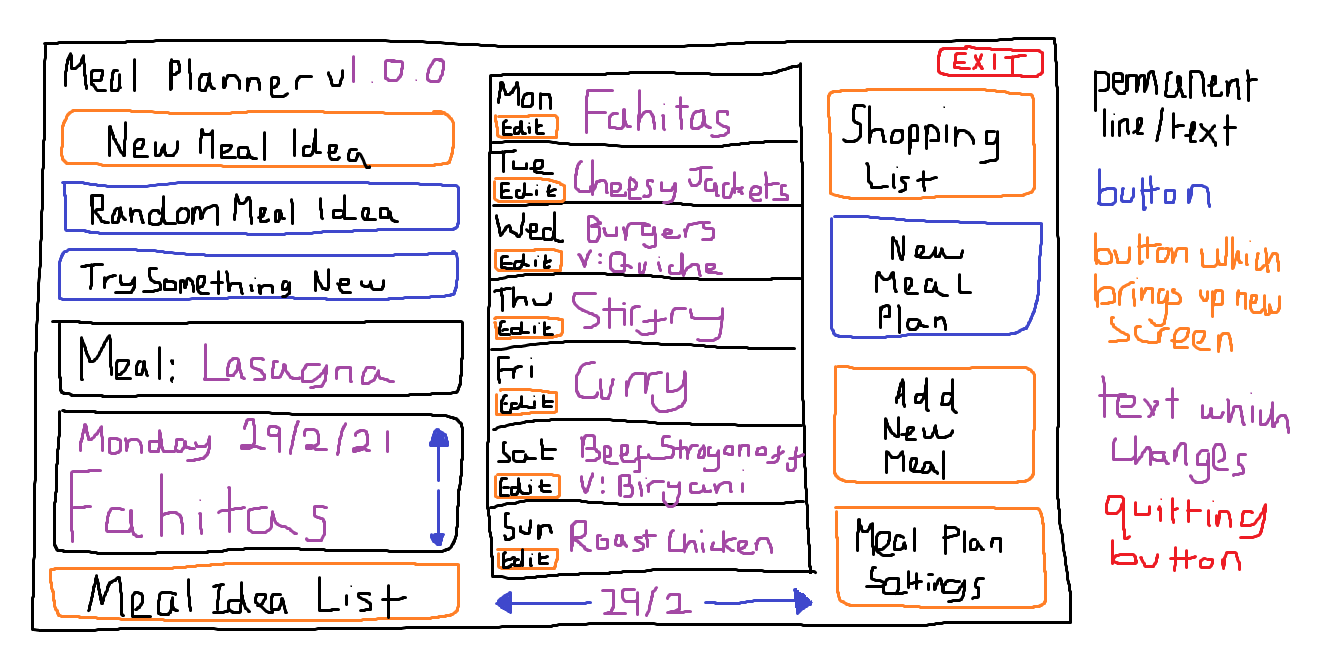 Meal Planner v1.0.0
New Meal Idea
Random Meal Idea
Try Something New
Meal: Lasagna
Monday 29/2/21
Fahitas
Meal Idea List
Mon
Edit
Fahitas
Tue
Edit
Cheesy Jackets
Wed
Edit
Burgers
V: Quiche
Thu
Edit
Stirfry
Fri
Edit
Curry
Sat
Edit
Beef Stroganoff
V: Biryani
Sun
Edit
Roast Chicken
29/2
EXIT
Shopping
List
New
Meal
Plan
Add
New
Meal
Meal Plan
Settings
permanent
line/text
button
button which
brings up new
screen
text which
changes
quitting
button